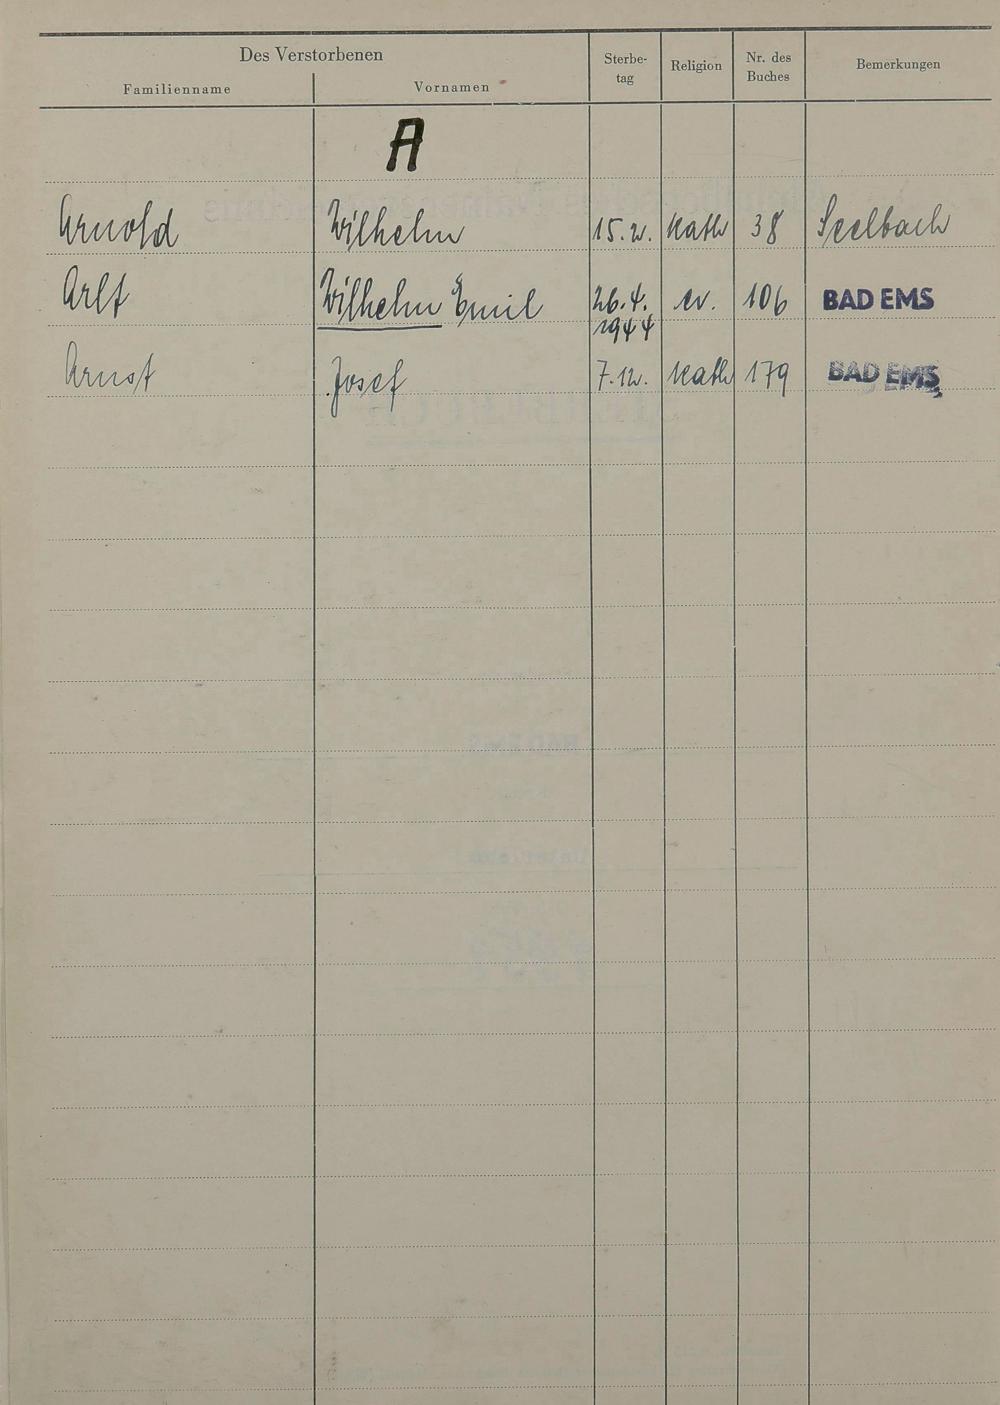 Des Verstorbenen
Familienname Vornamen Sterbe-
tag Religion Nr. des
Buches Bemerkungen
A
Arnold Wilhelm 15.2. Kath 38 Seelbach
Arlt Wilhelm Emil 26.4.
1944 ev. 106 BAD EMS
Arnst Josef 7.12. Kath 179 BAD EMS